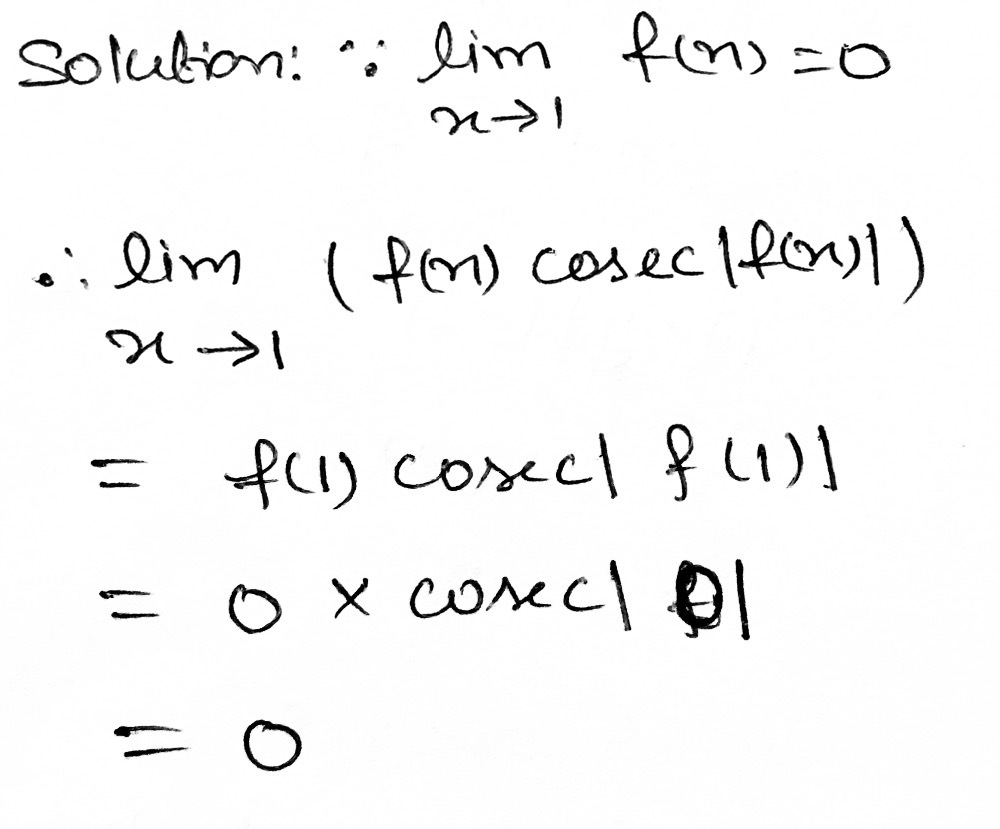 Solution: ∵ lim f(x) = 0
x→1
∴ lim ( f(x) cosec |f(x)| )
x→1
= f(1) cosec | f(1) |
= 0 × cosec | 0 |
= 0